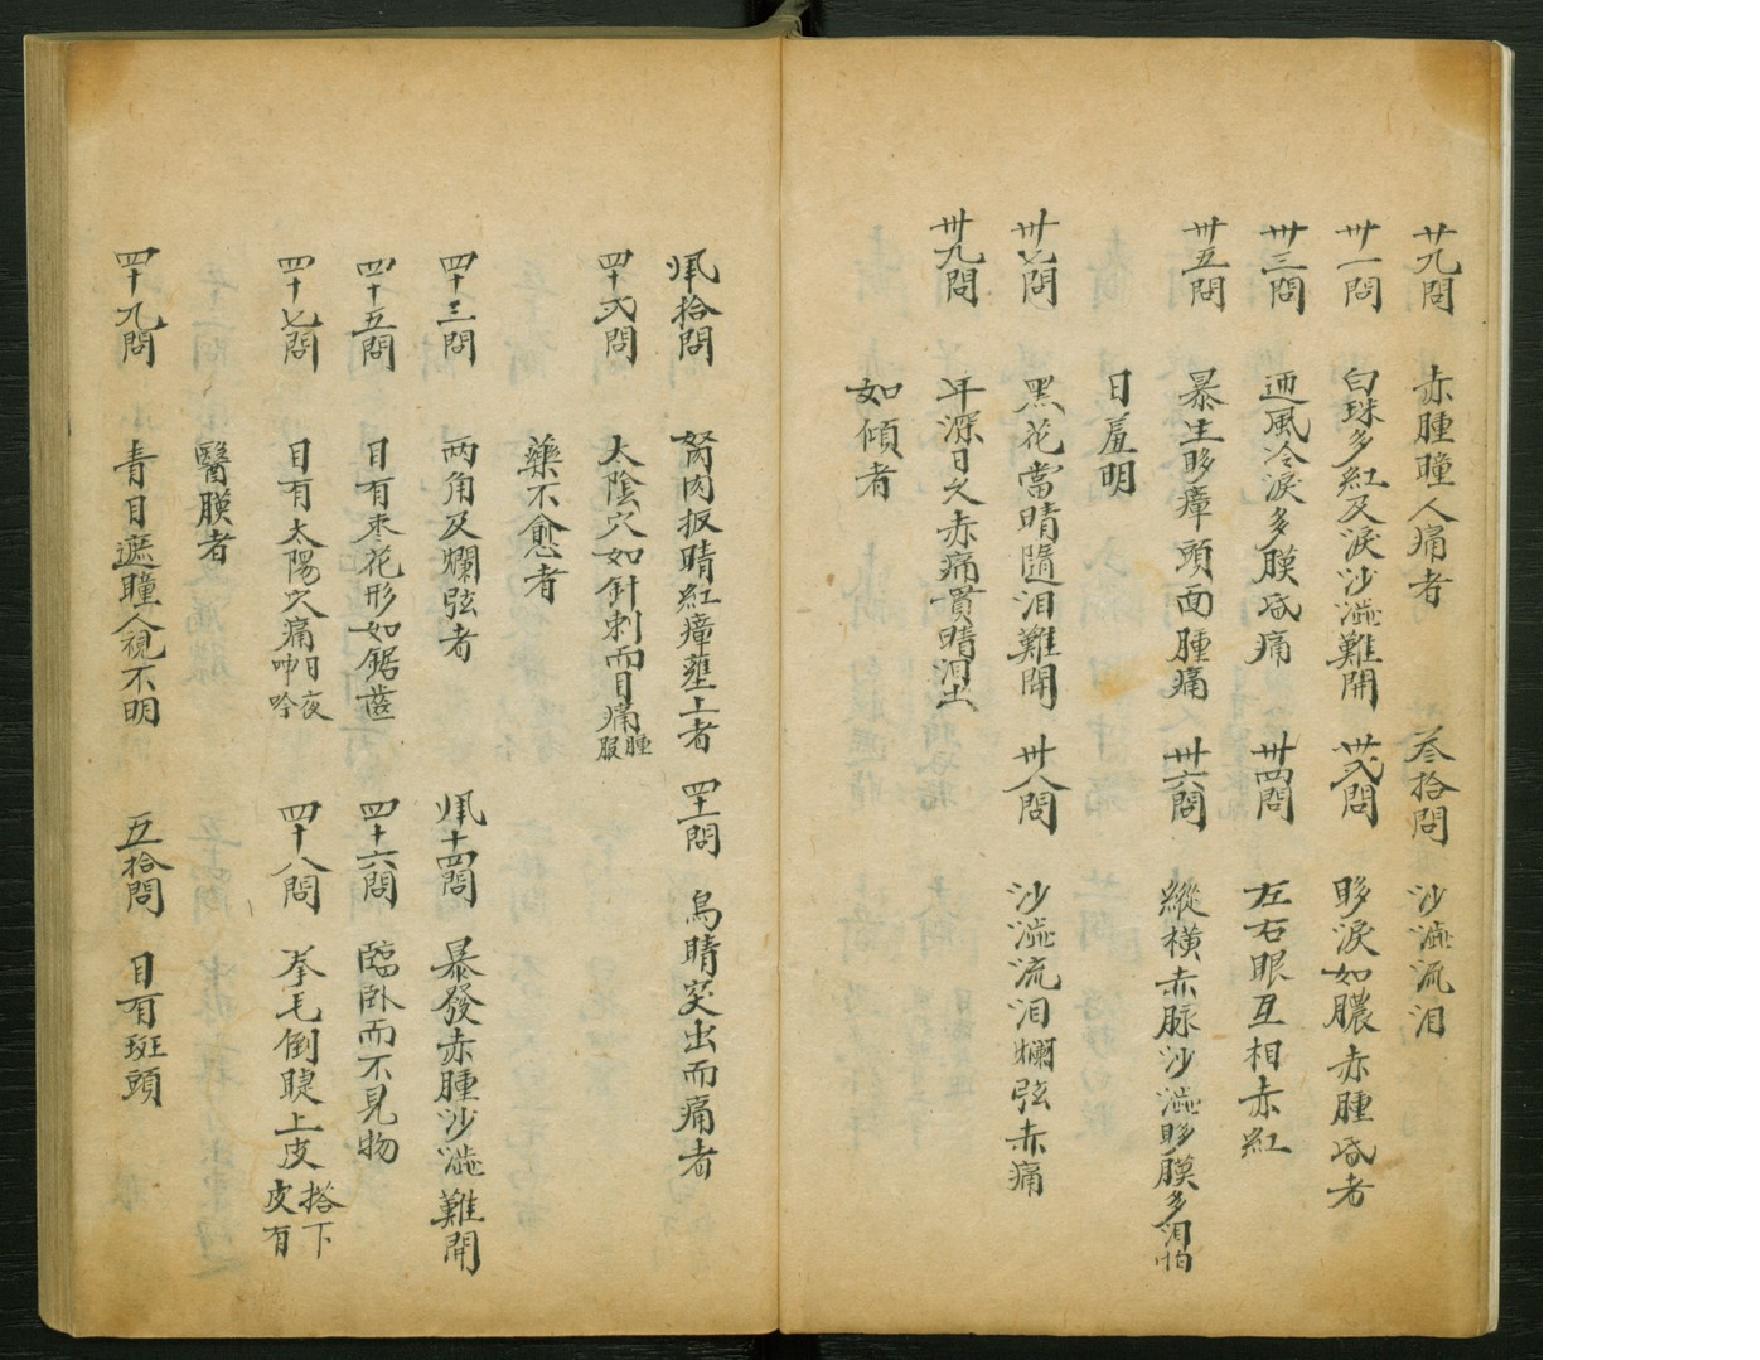 廿九問 赤腫瞳人痛者 叁拾問 沙澁流泪
卅一問 白珠多紅及淚沙澁難開 卅弍問 眵淚如膿赤腫昏者
卅三問 迎風冷淚多膜昏痛 卅四問 左右眼互相赤紅
卅五問 暴生眵瘴頭面腫痛 卅六問 縱橫赤脉沙澁眵膜多泪怕
日羞明
卅七問 黑花當睛隨泪難開 卅八問 沙澁流泪爛弦赤痛
卅九問 年深日久赤痛貫睛泪出
如傾者
肆拾問 胬肉扳睛紅瘴壅上者 四十一問 烏睛突出而痛者
四十弍問 太陰穴如針刺而目痛腫服
藥不愈者
四十三問 两角及爛弦者 肆十四問 暴發赤腫沙澁難開
四十五問 目有枣花形如鋸齒 四十六問 臨卧而不見物
四十七問 目有太陽穴痛日夜呻吟 四十八問 拳毛倒睫上皮搭下皮有
醫膜者
四十九問 青目遮瞳人視不明 五拾問 目有斑頭